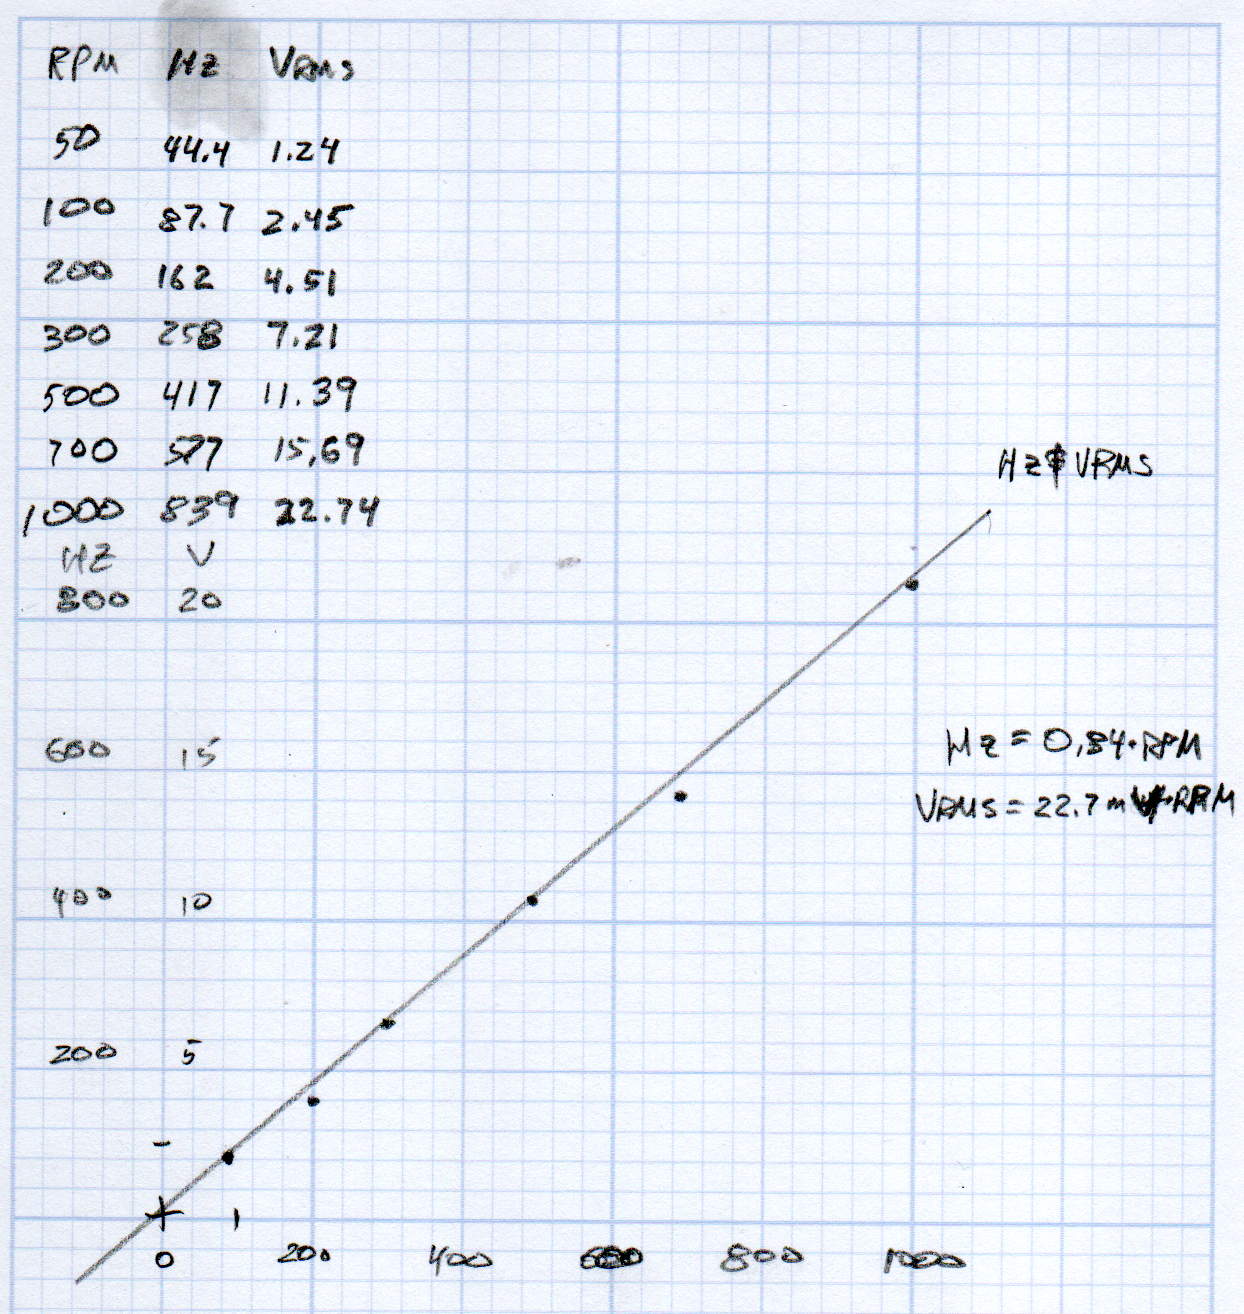 RPM Hz VRMS
50 44.4 1.24
100 87.7 2.45
200 162 4.51
300 258 7.21
500 417 11.39
700 577 15,69
1000 839 22.74
HZ V
800 20
Hz & VRMS
600 15
Hz = 0,84·RPM
VRMS = 22.7 mV·RPM
400 10
200 5
0 200 400 600 800 1000